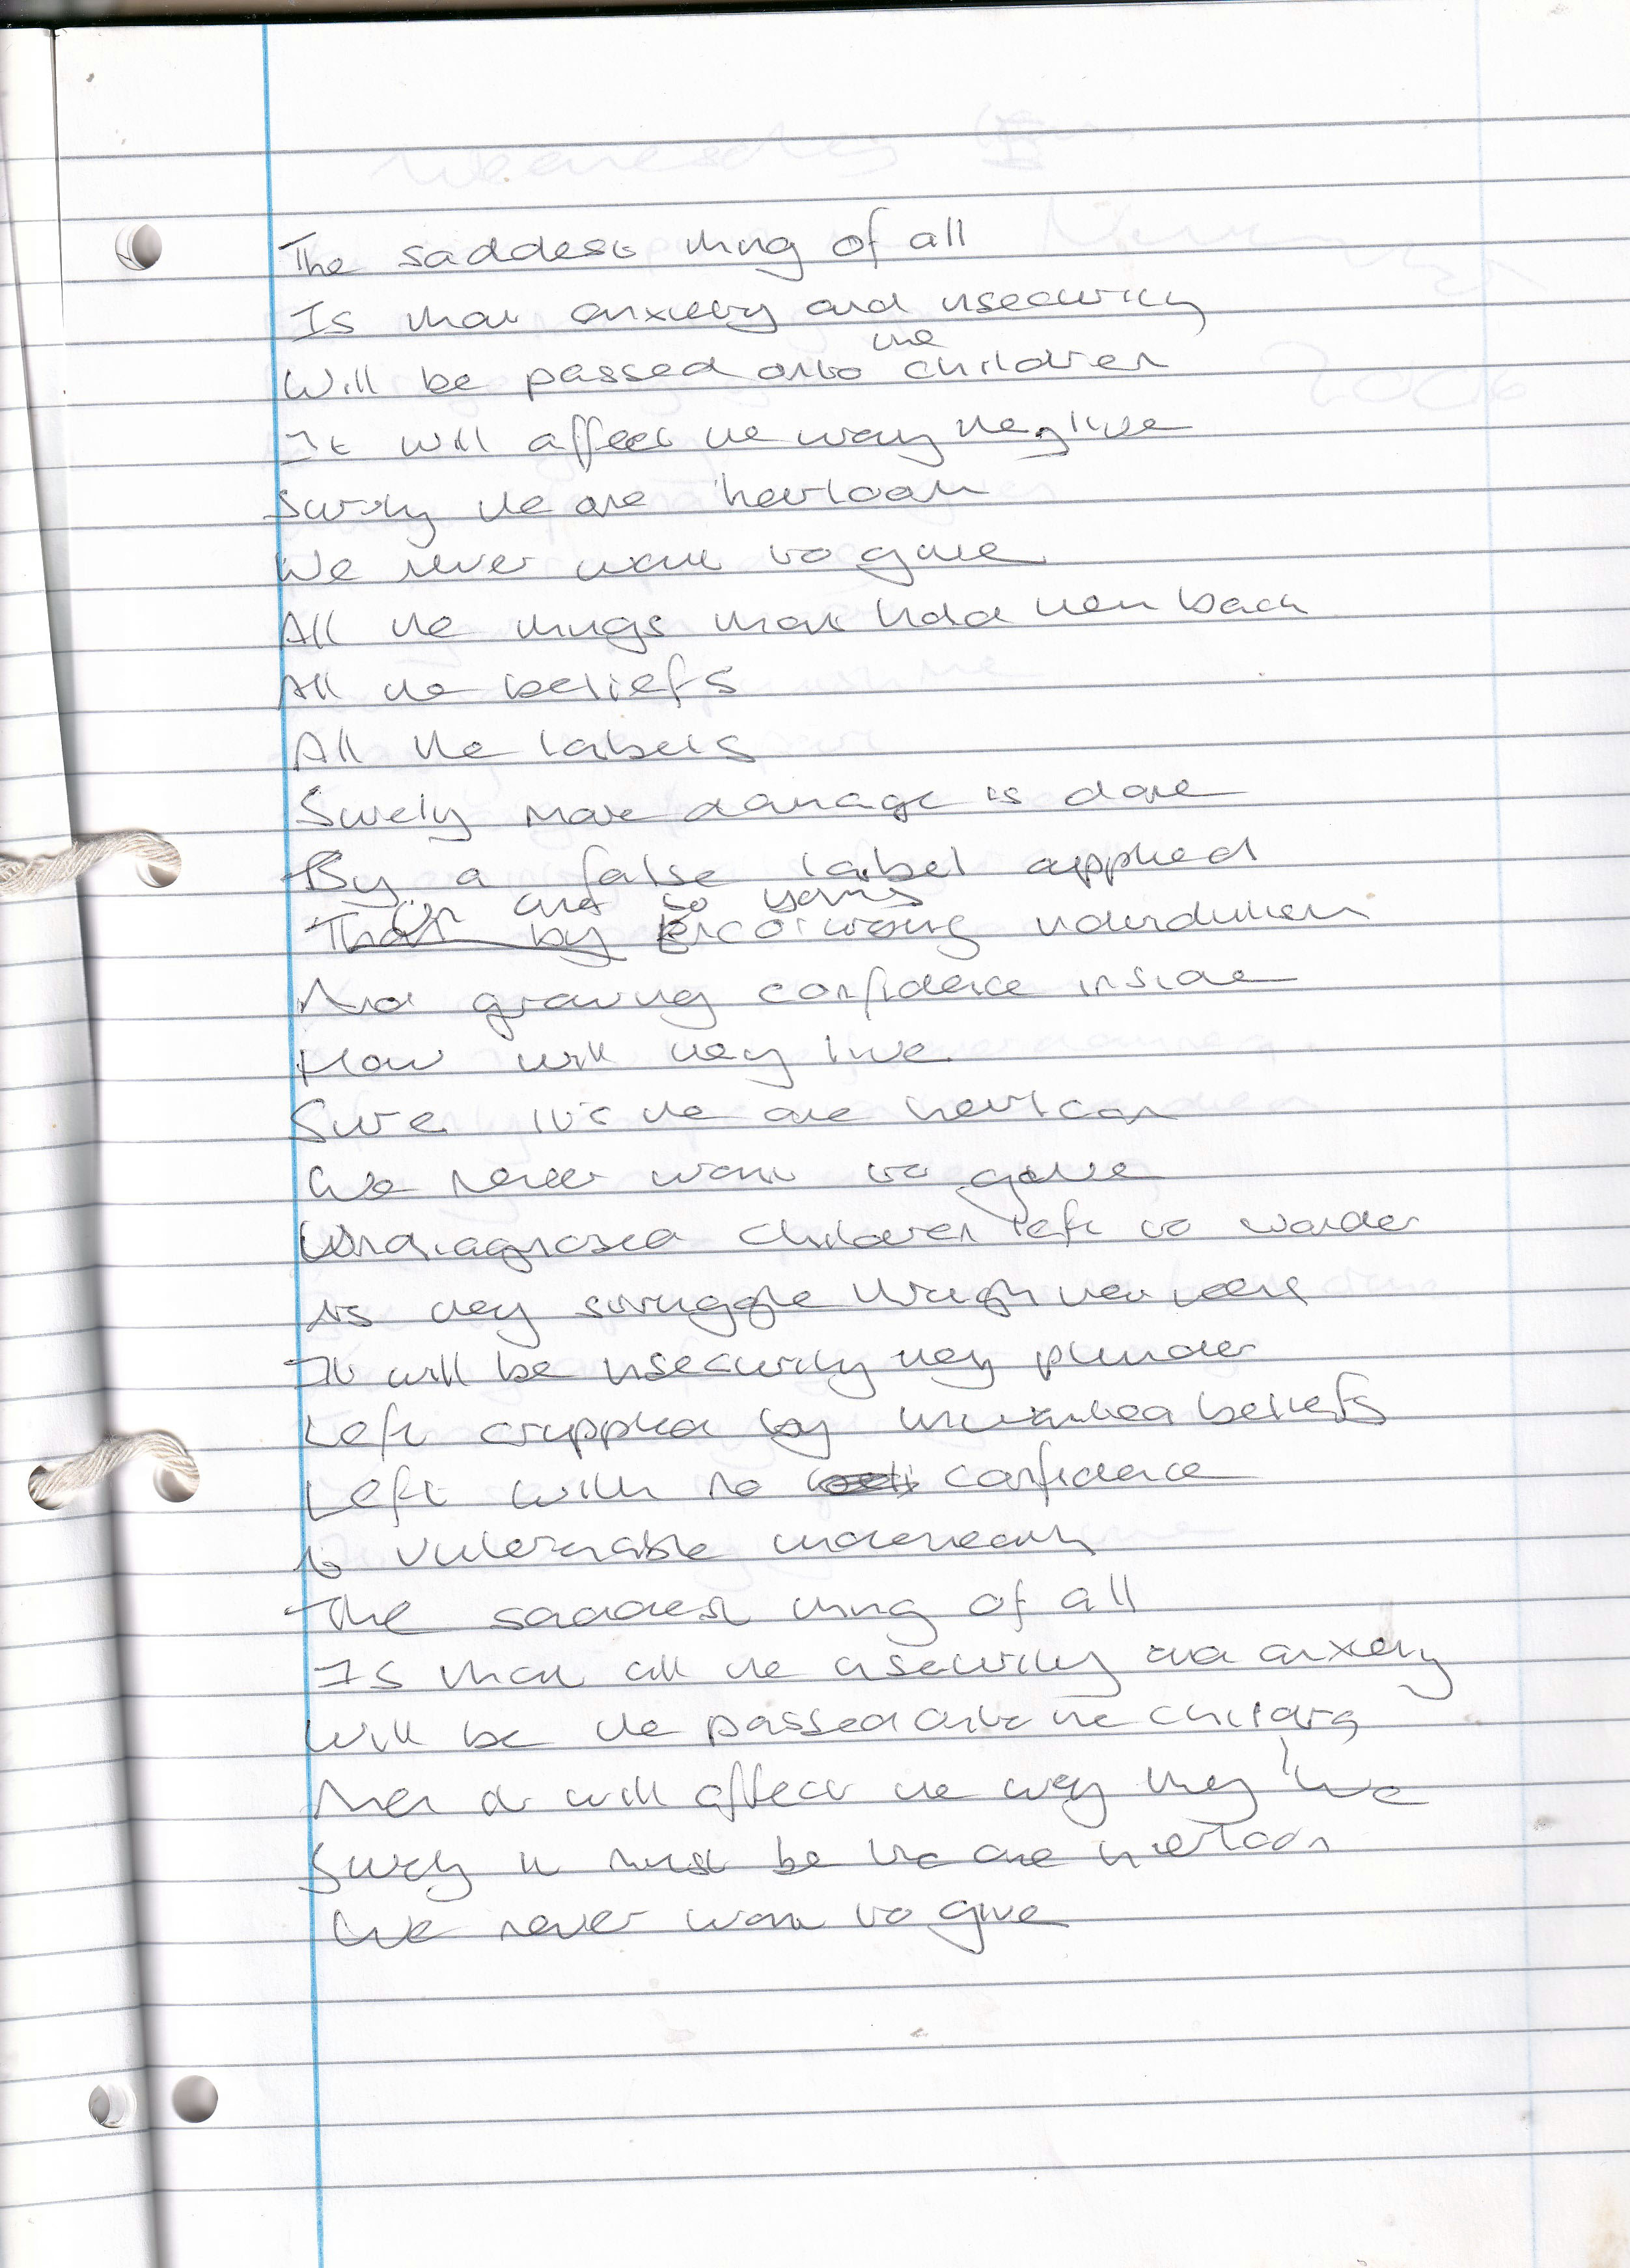 The saddest thing of all
Is that anxiety and insecurity
the
Will be passed onto children
It will affect the way they live
Surely the one heirloom
We never want to give
All the things that hold them back
All the beliefs
All the labels
Surely more damage is done
By a false label applied
On one so young
That by encouraging
And growing confidence inside
How will they live
Sure it's the one heirloom
We never want to give
Undiagnosed children left to wonder
As they struggle through their
It will be insecurity they plunder
Left crippled by unwanted beliefs
Left with no confidence
vulnerable underneath
The saddest thing of all
Is that all the insecurity and anxiety
Will be the passed onto the children
And it will affect the way they live
Surely it must be the one heirloom
We never want to give